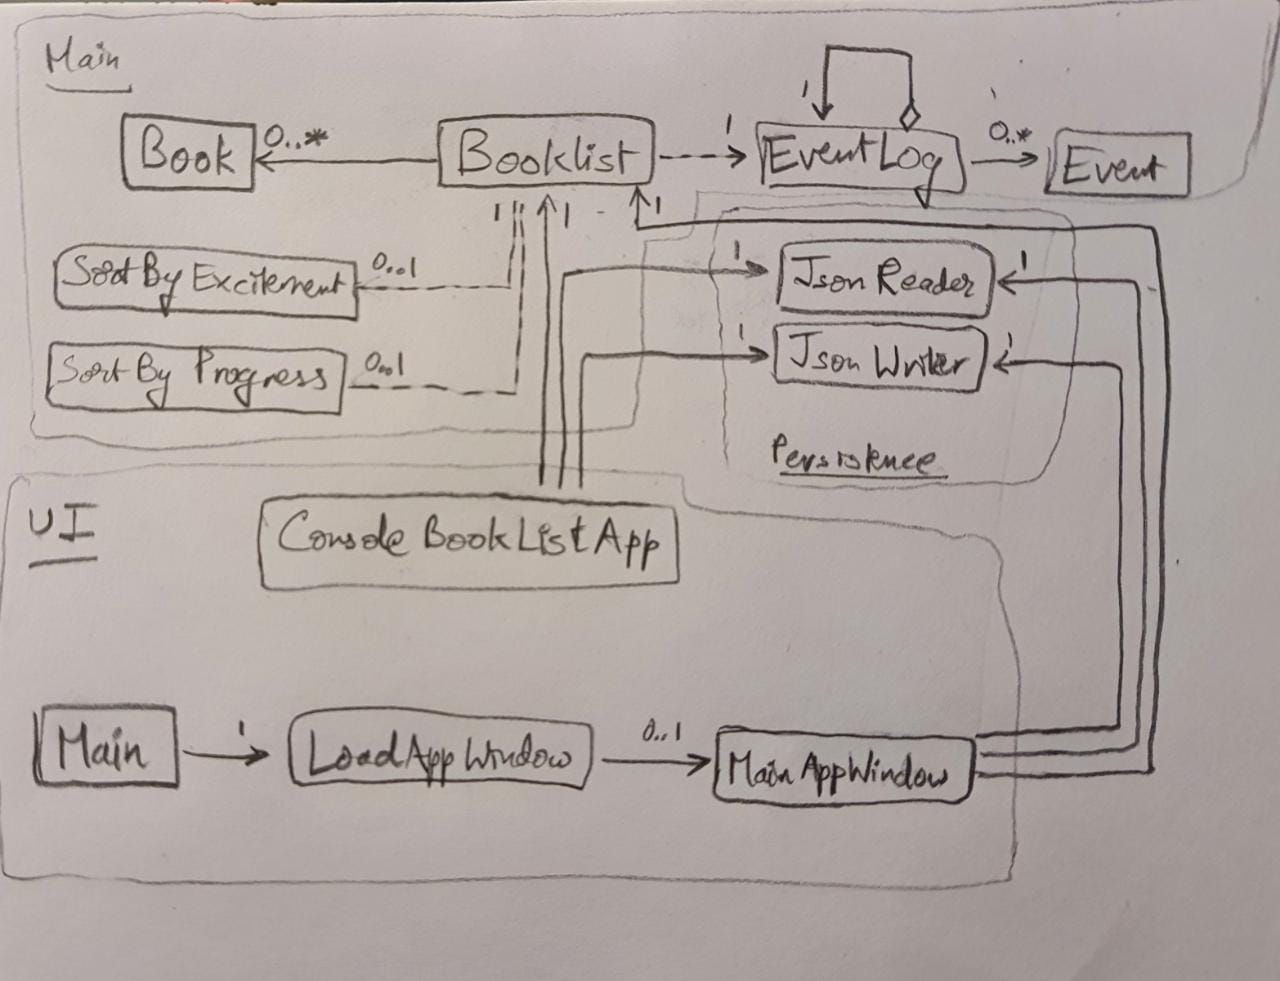 Main
1
0..*
Book
0..*
Booklist
1
EventLog
Event
1
1
1
Sort By Excitement
0..1
1
Json Reader
1
Sort By Progress
0..1
1
Json Writer
1
Persistence
UI
Console BookList App
Main
1
LoadAppWindow
0..1
MainAppWindow